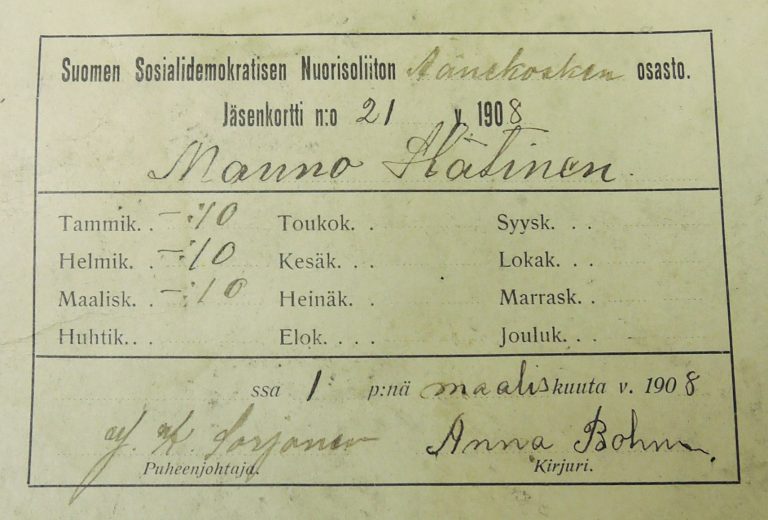 Suomen Sosialidemokratisen Nuorisoliiton Äänekosken osasto.
Jäsenkortti n:o 21 v. 1908
Manno
Tammik. . —:10 Toukok. . . Syysk. . .
Helmik. . —:10 Kesäk. . . Lokak. . .
Maalisk. . —:10 Heinäk. . . Marrask. .
Huhtik. . . Elok. . . . Jouluk. . .
ssa 1 p:nä maaliskuuta v. 1908
K. Sorjonen Anna Bohm
Puheenjohtaja. Kirjuri.